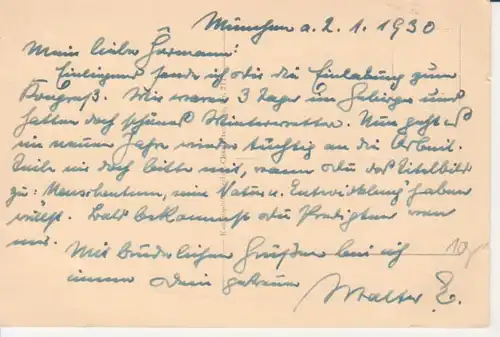 München a. 2. 1. 1930
Mein lieber Hermann:
Einliegend sende ich dir die Einladung zum
Kongreß. Wir waren 3 Tage im Gebirge und
hatten dort schönes Winterwetter. Nun geht es
im neuen Jahre wieder tüchtig an die Arbeit.
Teile mir doch bitte mit, wann du das Titelbild
zu: Menschentum, sein Natur u. Entwicklung haben
willst. Bald bekommst du Predigten von
mir.
Mit brüderlichen Grüßen bin ich
immer dein getreuer
Walter E.
10